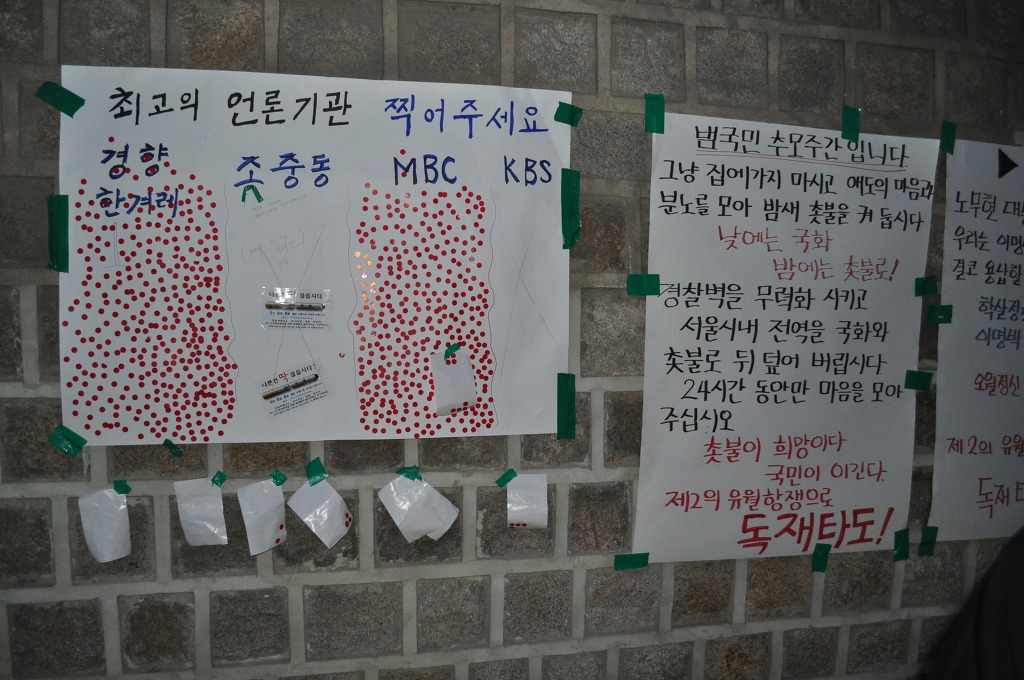 최고의 언론기관 찍어주세요
경향 조중동 MBC KBS
한겨레
나쁜건 딱 끊읍시다!
범국민 추모주간입니다
그냥 집에가지 마시고 애도의 마음과
분노를 모아 밤새 촛불을 켜 둡시다
낮에는 국화
밤에는 촛불로!
경찰벽을 무력화 시키고
서울시내 전역을 국화와
촛불로 뒤 덮어 버립시다
24시간 동안만 마음을 모아
주십시오
촛불이 희망이다
국민이 이긴다
제2의 유월항쟁으로
독재타도!
노무현 대
우리는 이명
결코 용납할
학살정
이명박
오월정신
제2의 유월
독재타